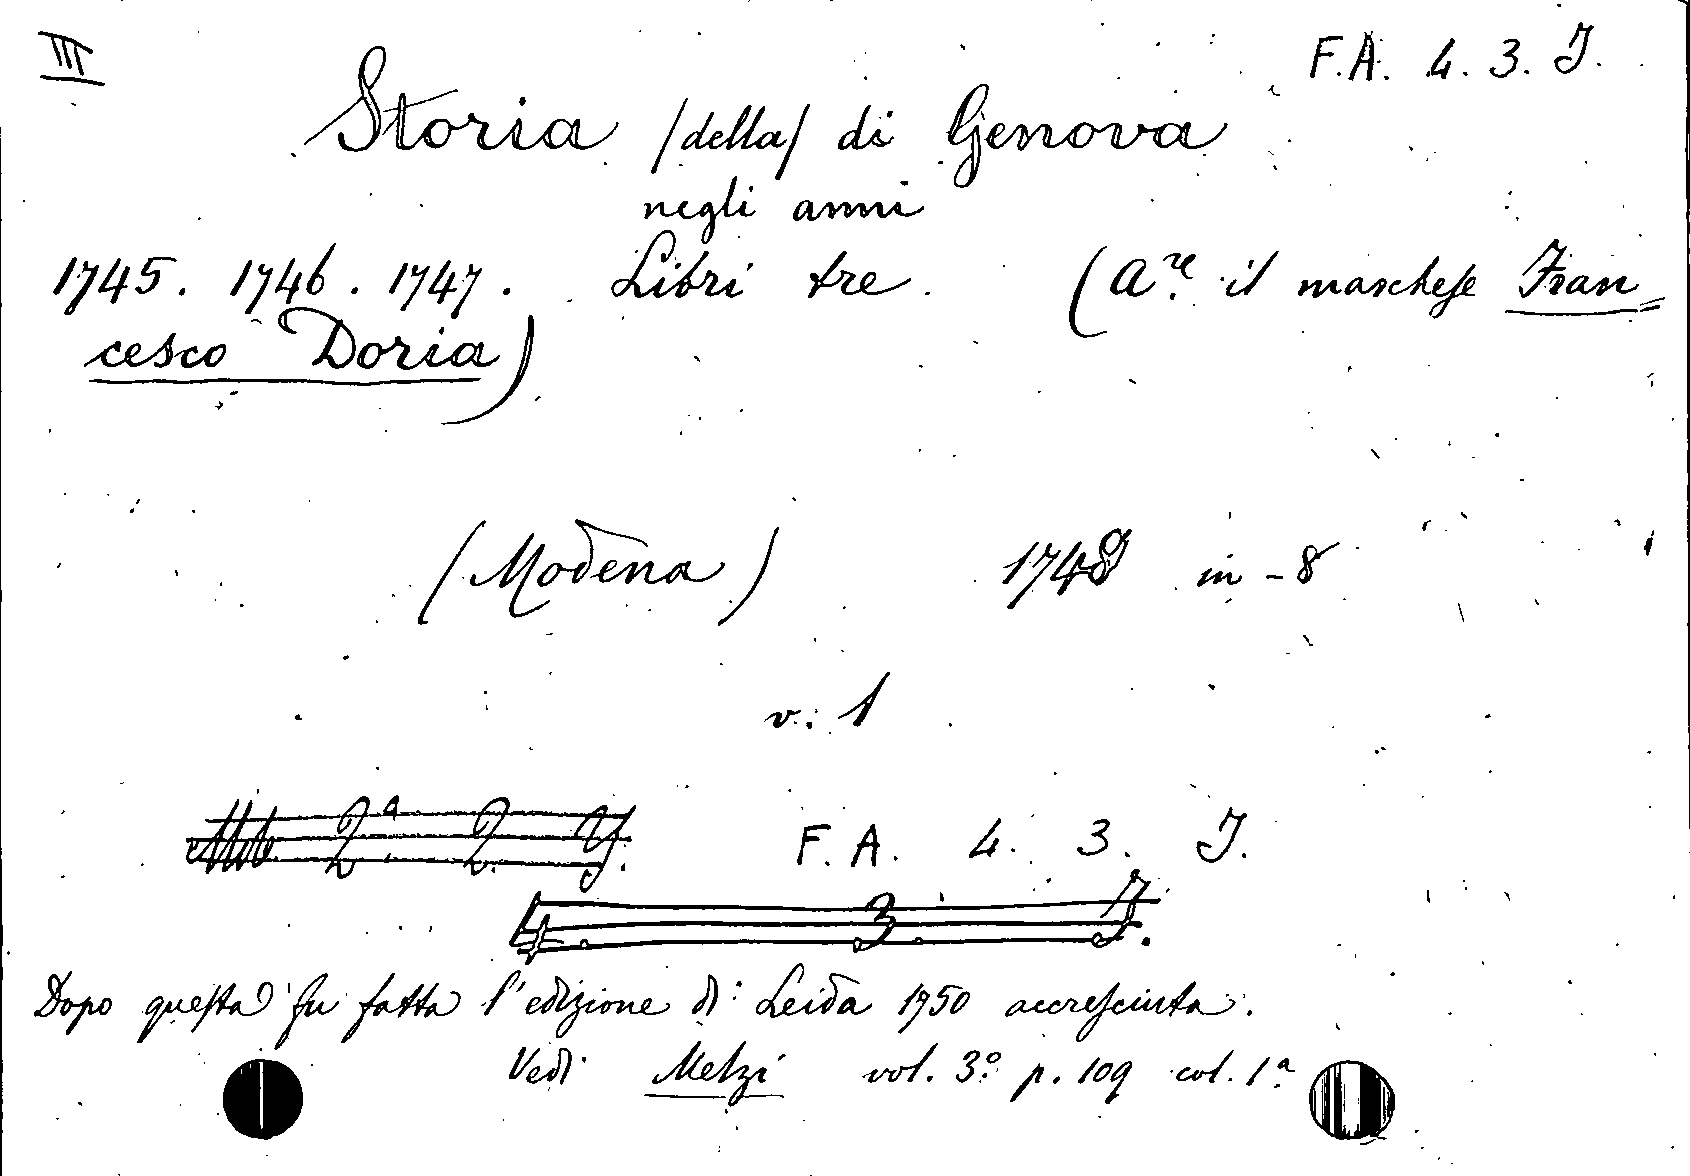 III
F.A. 4. 3. J.
Storia /della/ di Genova
negli anni
1745. 1746. 1747. Libri tre. (A.re il marchese Fran=
cesco Doria)
(Modena) 1748 in-8
v. 1
2.a 2. y. F. A. 4. 3. J.
4. 3. J.
Dopo questa fu fatta l'edizione di Leida 1750 accresciuta.
Vedi Melzi vol. 3.o p. 109 col. 1.a